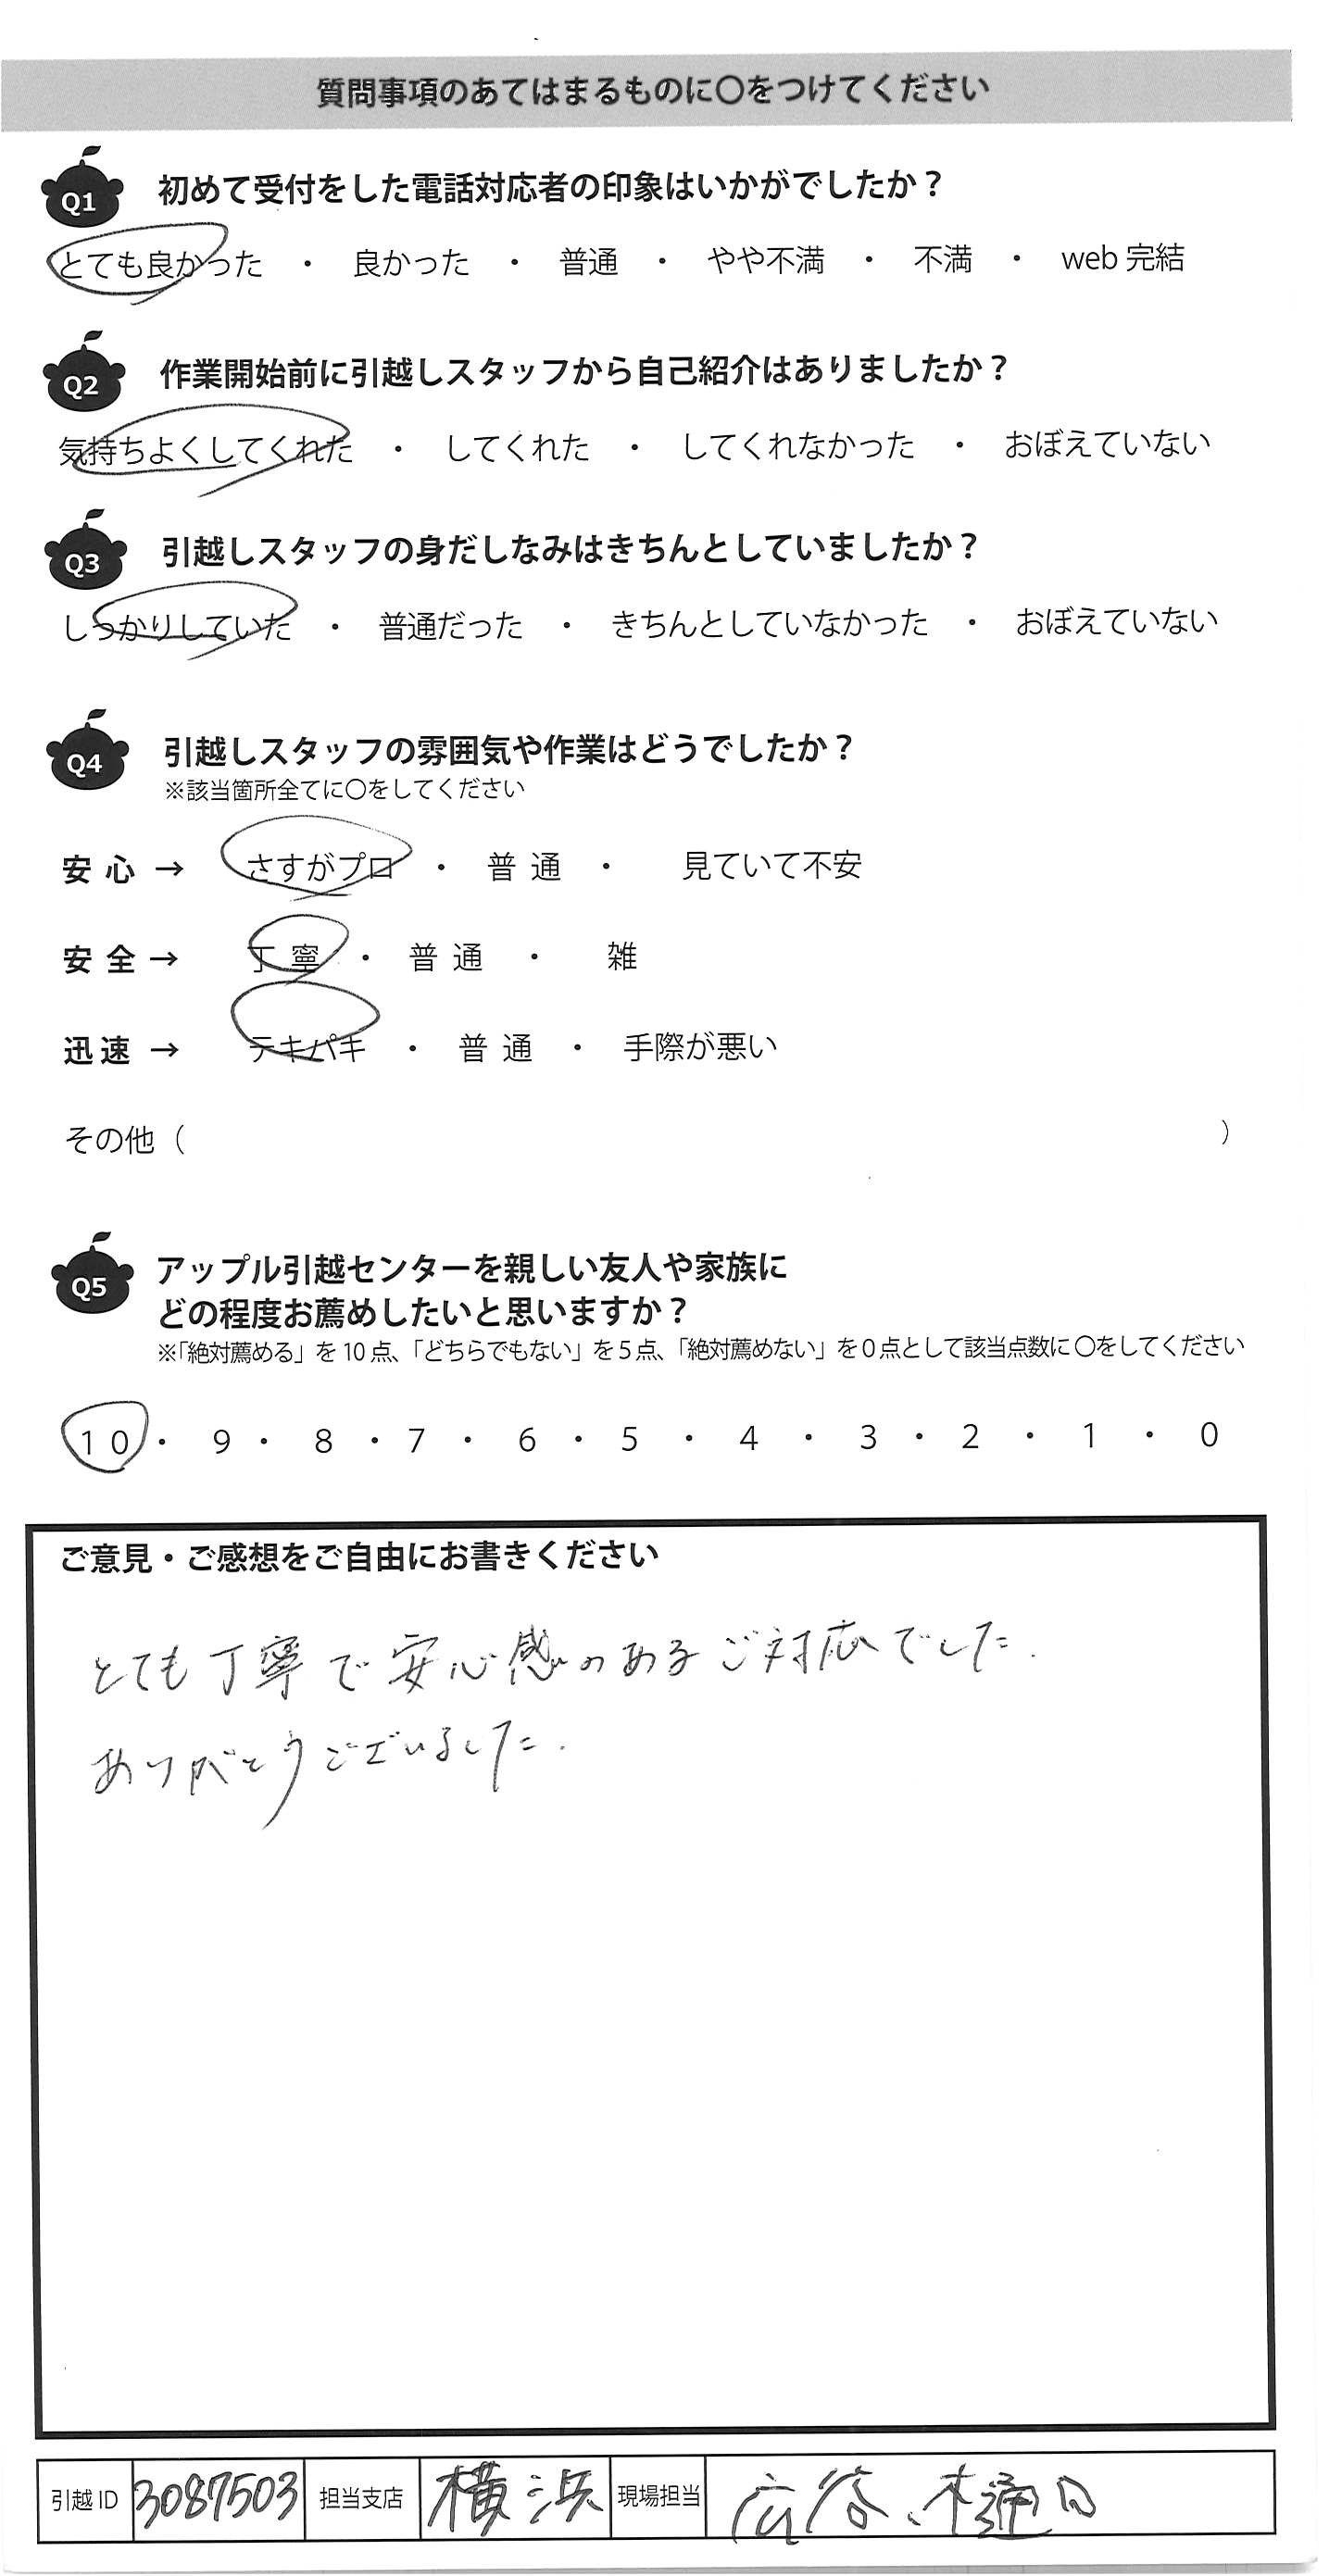 質問事項のあてはまるものに〇をつけてください
Q1 初めて受付をした電話対応者の印象はいかがでしたか？
とても良かった ・ 良かった ・ 普通 ・ やや不満 ・ 不満 ・ web 完結
Q2 作業開始前に引越しスタッフから自己紹介はありましたか？
気持ちよくしてくれた ・ してくれた ・ してくれなかった ・ おぼえていない
Q3 引越しスタッフの身だしなみはきちんとしていましたか？
しっかりしていた ・ 普通だった ・ きちんとしていなかった ・ おぼえていない
Q4 引越しスタッフの雰囲気や作業はどうでしたか？
※該当箇所全てに〇をしてください
安心 → さすがプロ ・ 普通 ・ 見ていて不安
安全 → 丁寧 ・ 普通 ・ 雑
迅速 → テキパキ ・ 普通 ・ 手際が悪い
その他（ ）
Q5 アップル引越センターを親しい友人や家族に
どの程度お薦めしたいと思いますか？
※「絶対薦める」を10点、「どちらでもない」を5点、「絶対薦めない」を0点として該当点数に〇をしてください
10 ・ 9 ・ 8 ・ 7 ・ 6 ・ 5 ・ 4 ・ 3 ・ 2 ・ 1 ・ 0
ご意見・ご感想をご自由にお書きください
とても丁寧で安心感のあるご対応でした.
ありがとうございました.
引越ID 3087503 担当支店 横浜 現場担当 広谷、